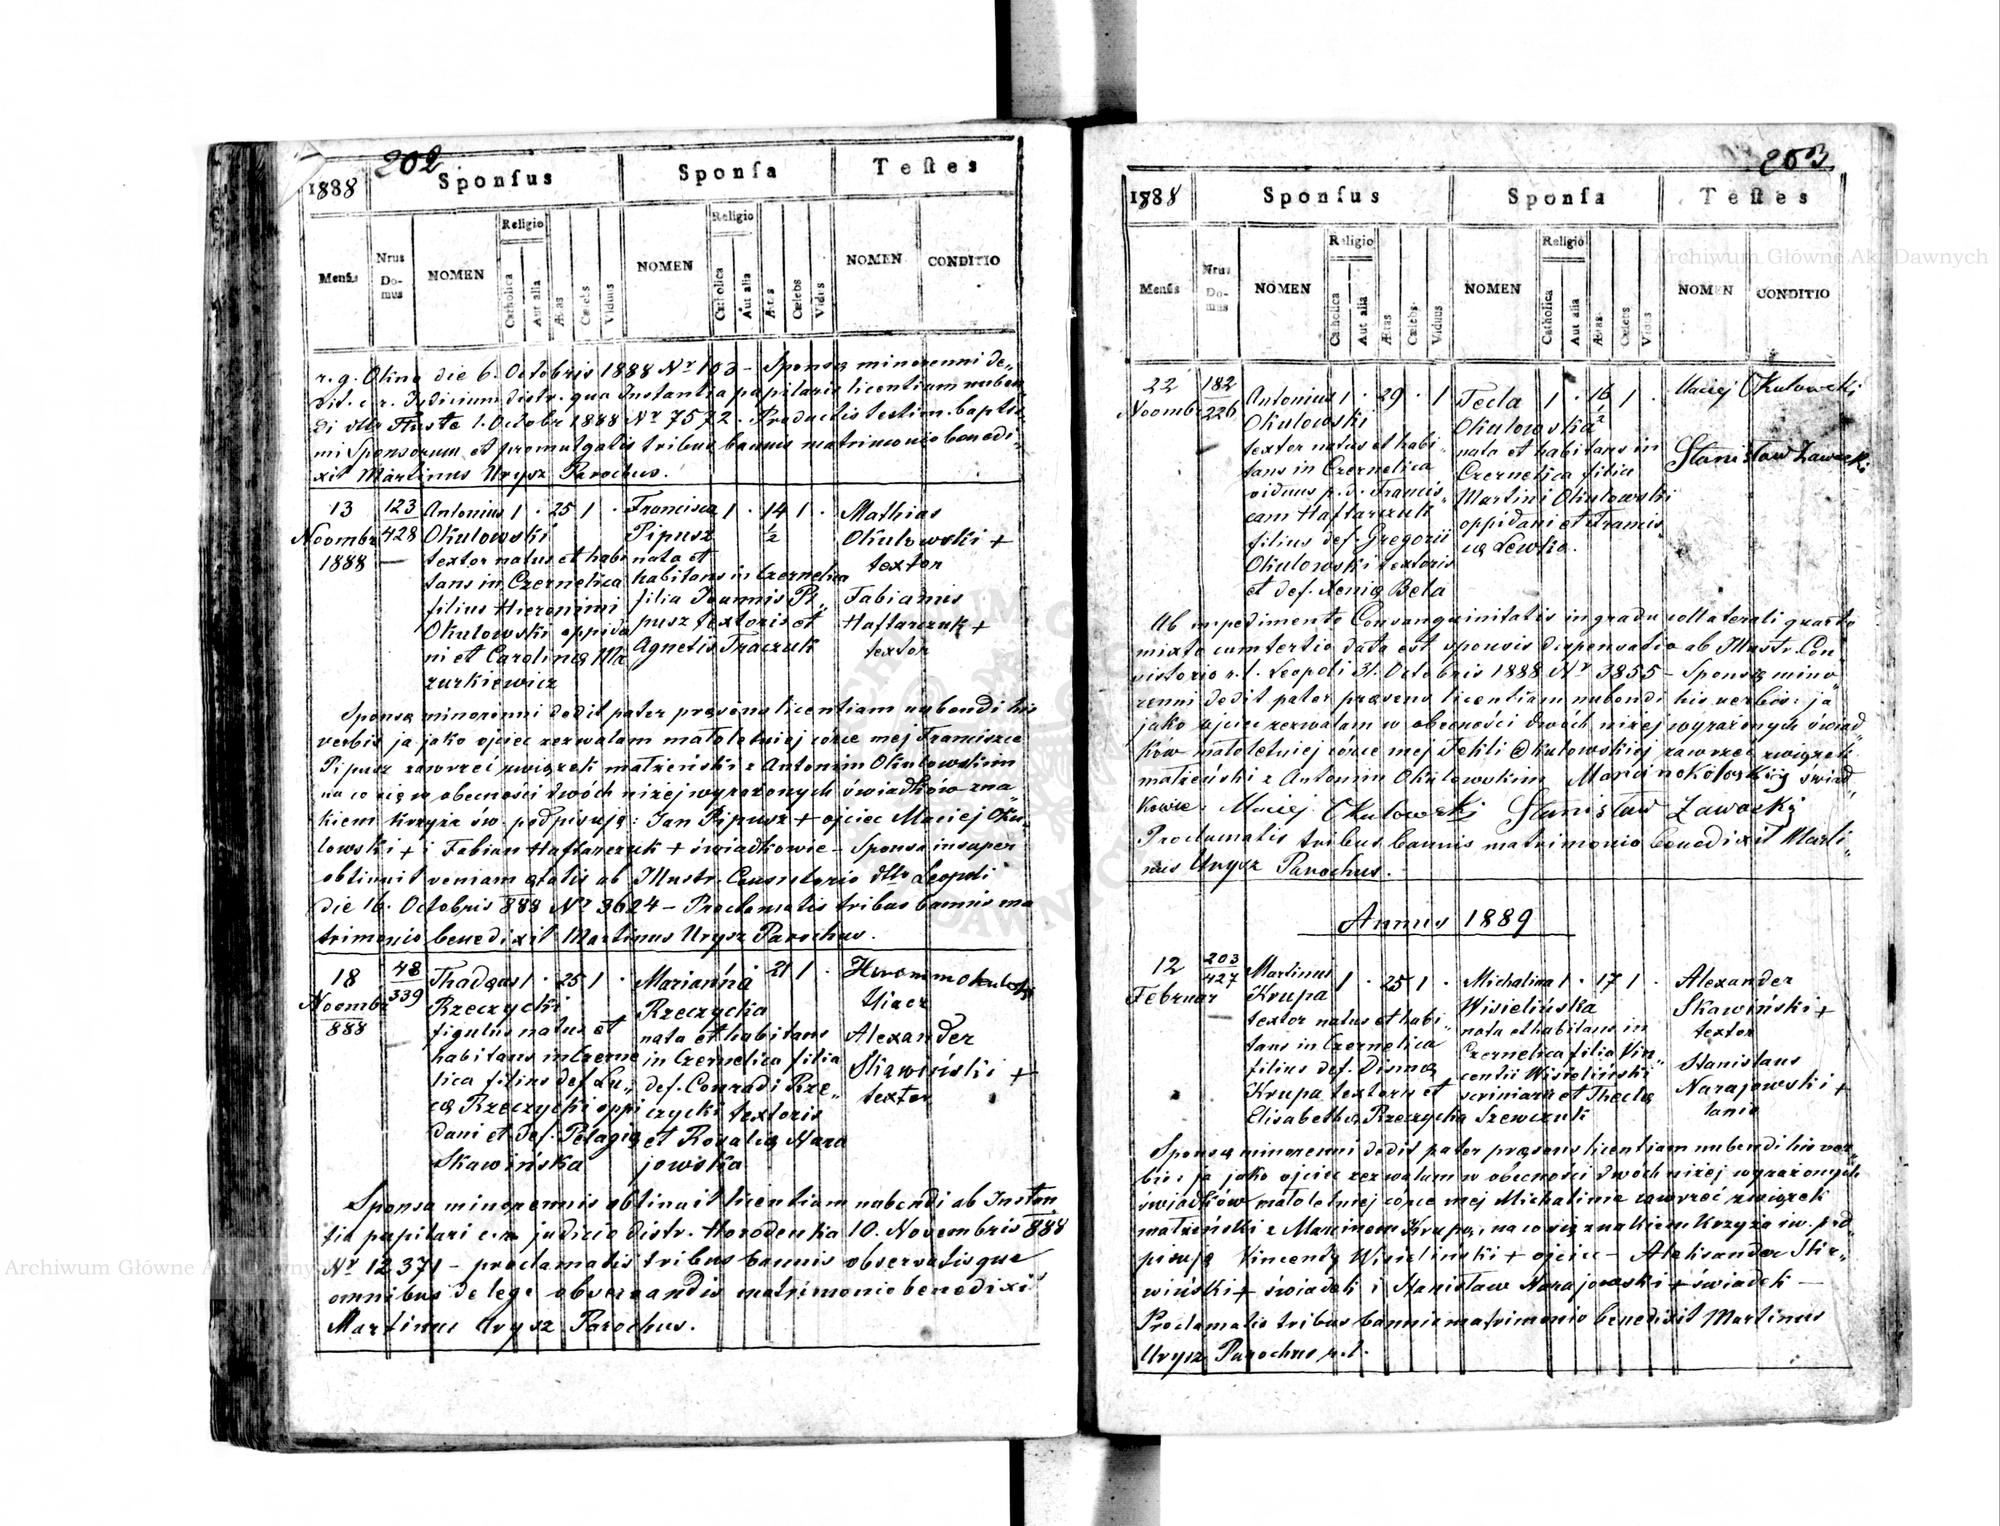 202
1888 Sponſus Sponſa Teſtes
Menſis Nrus Domus NOMEN Religio Catholica Aut alia Ætas Cælebs Viduus NOMEN Religio Catholica Aut alia Ætas Cælebs Vidus NOMEN CONDITIO
r. g. die 6. Octobris 1888 Nr 103 – Sponsæ minorenni de„
dit c. r. Judicium distr. qua Instantia pupilaris licentiam nuben„
di dtto 1. Octobr 1888 Nr 7572. Productis testim. baptis„
mi Sponsorum et promulgatis tribus bannis matrimonio benedi„
xit Martinus Urysz Parochus.
13 Noombr 1888
123
428
Antonius 1 · 25 1 ·
Okulowski
textor natus et habi
tans in Czernelica
filius Hieronimi
Okulowski oppida
ni et Carolinæ Ma
zurkiewicz
Francisca 1 · 14 ½ 1 ·
Pipusz
nata et
habitans in Czernelica
filia Joannis Pi„
pusz textoris et
Agnetis Tkaczuk
Mathias
Okulowski +
textor
Fabianus
Haftarczuk +
textor
Sponsæ minorenni dedit pater præsens licentiam nubendi his
verbis ja jako ojciec zezwalam małoletniej córce mej Franciszce
Pipusz zawrzeć zwiąsek małżeński z Antonim Okulowskim
na co się w obecności dwóch niżej wyrażonych świadków zna„
kiem krzyża św. podpisuję: Jan Pipusz + ojciec Maciej Oku„
lowski + i Fabian Haftarczuk + świadkowie – Sponsa insuper
obtinuit veniam ætatis ab Illustr. Consistorio dtto Leopoli
die 16. Octobris 888 Nr 3624 – Proclamatis tribus bannis ma
trimonio benedixit Martinus Urysz Parochus.
18 Noombr 888
48
339
Thadæus 1 · 25 1 ·
Rzeczycki
figulus natus et
habitans in Czerne
lica filius def. Lu„
cæ Rzeczycki oppi
dani et def. Pelagiæ
Skawińska
Marianna 21 1 ·
Rzeczycka
nata et habitans
in Czernelica filia
def. Conradi Rze„
czycki textoris
et Rosaliæ Nara
jowska
Alexander
Skawiński +
textor
Sponsa minorennis obtinuit licentiam nubendi ab Instan
tia pupilari c. r. judicio distr. Horodenka 10. Novembris 888
Nr 12371 – proclamatis tribus bannis observatisque
omnibus de lege observandis matrimonio benedixit
Martinus Urysz Parochus.
203
1888 Sponſus Sponſa Teſtes
Menſis Nrus Domus NOMEN Religio Catholica Aut alia Ætas Cælebs Viduus NOMEN Religio Catholica Aut alia Ætas Cælebs Vidus NOMEN CONDITIO
22 Noombr
182
226
Antonius 1 · 29 · 1
Okulowski
textor natus et habi„
tans in Czernelica
viduus p. d. Francis„
cam Haftarczuk
filius def. Gregorii
Okulowski textoris
et def. Xeniæ Bela
Tecla 1 · 16 ½ 1 ·
Okulowska
nata et habitans in
Czernelica filia
Martini Okulowski
oppidani et Francis„
cæ Lewko.
Maciej Okulowski
Stanisław Zawacki
Ab impedimento Consanguinitatis in gradu collaterali quarto
mixto cum tertio data est sponsis dispensatio ab Illustr. Con„
sistorio r. l. Leopoli 31. Octobris 1888 Nr 3855 – Sponsæ mino„
renni dedit pater præsens licentiam nubendi his verbis: ja
jako ojciec zezwalam w obecności dwóch niżej wyrażonych świad„
ków małoletniej córce mej Tekli Okulowskiej zawrzeć zwiąsek
małżeński z Antonim Okulowskim świad„
kowie: Maciej Okulowski Stanisław Zawacki
Proclamatis tribus bannis matrimonio benedixit Marti„
nus Urysz Parochus.
Annus 1889
12 Februar
203
427
Martinus 1 · 25 1 ·
Krupa
textor natus et habi„
tans in Czernelica
filius def. Dismæ
Krupa textoris et
Elisabethæ Rzeczycka
Michalina 1 · 17 1 ·
Wisielińska
nata et habitans in
Czernelica filia Vin„
centii Wisieliński
scriniarii et Theclæ
Szewczuk
Alexander
Skawiński +
textor
Stanislaus
Narajowski +
lanio
Sponsæ minorenni dedit pater præsens licentiam nubendi his ver„
bis: ja jako ojciec zezwalam w obecności dwóch niżej wyrażonych
świadków małoletniej córce mej Michalinie zawrzeć zwiąsek
małżeński z Marcinem Krupą, na co się znakiem krzyża św. pod„
pisuję Vincenty Wisielinski + ojciec – Aleksander Ska„
wiński + świadek i Stanisław Narajowski + świadek –
Proclamatis tribus bannis matrimonio benedixit Martinus
Urysz Parochus r. l.
Archiwum Główne Akt Dawnych
Archiwum Główne Akt Dawnych